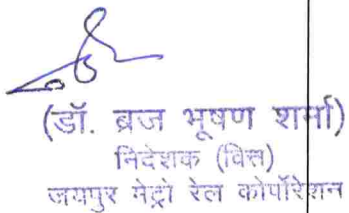 (डॉ. ब्रज भूषण शर्मा)
निदेशक (वित्त)
जयपुर मेट्रो रेल कॉर्पोरेशन